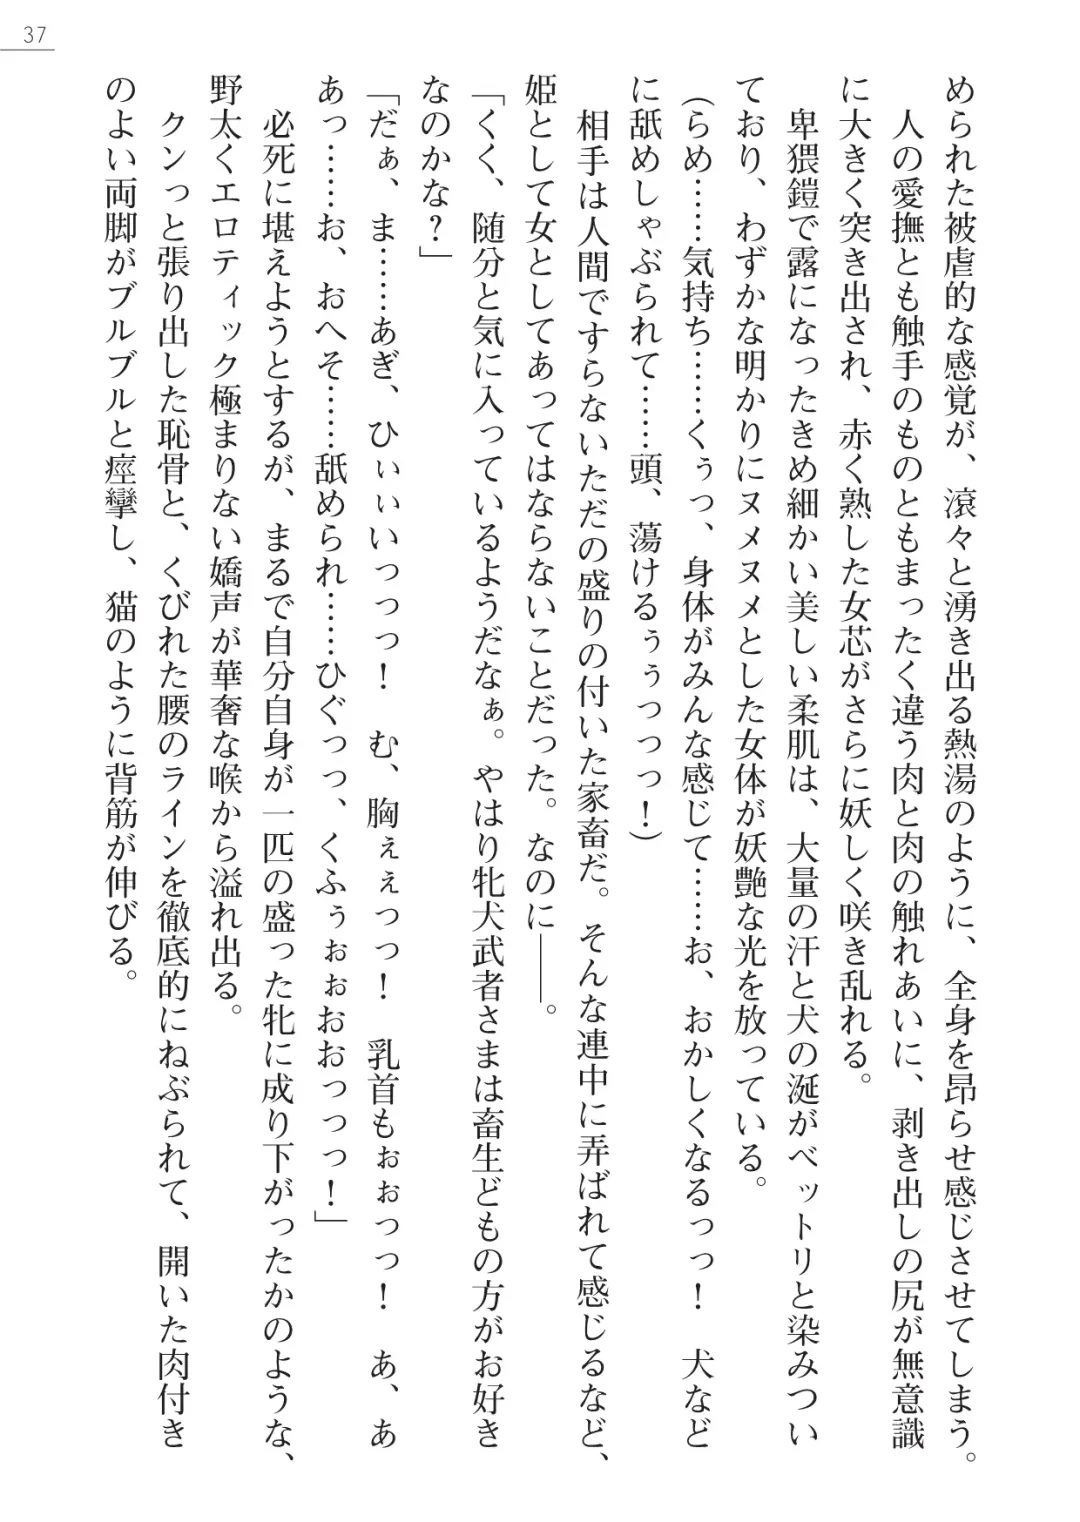 37
められた被虐的な感覚が、滾々と湧き出る熱湯のように、全身を昂らせ感じさせてしまう。
人の愛撫とも触手のものともまったく違う肉と肉の触れあいに、剥き出しの尻が無意識
に大きく突き出され、赤く熟した女芯がさらに妖しく咲き乱れる。
卑猥鎧で露になったきめ細かい美しい柔肌は、大量の汗と犬の涎がベットリと染みつい
ており、わずかな明かりにヌメヌメとした女体が妖艶な光を放っている。
(らめ……気持ち……くぅっ、身体がみんな感じて……お、おかしくなるっっ！　犬など
に舐めしゃぶられて……頭、蕩けるぅぅっっっ！)
相手は人間ですらないただの盛りの付いた家畜だ。そんな連中に弄ばれて感じるなど、
姫として女としてあってはならないことだった。なのに――。
「くく、随分と気に入っているようだなぁ。やはり牝犬武者さまは畜生どもの方がお好き
なのかな？」
「だぁ、ま……あぎ、ひぃぃいっっっ！　む、胸ぇぇっっ！　乳首もぉぉっっ！　あ、あ
あっ……お、おへそ……舐められ……ひぐっっ、くふぅぉぉおおっっっ！」
必死に堪えようとするが、まるで自分自身が一匹の盛った牝に成り下がったかのような、
野太くエロティック極まりない嬌声が華奢な喉から溢れ出る。
クンっと張り出した恥骨と、くびれた腰のラインを徹底的にねぶられて、開いた肉付き
のよい両脚がブルブルと痙攣し、猫のように背筋が伸びる。